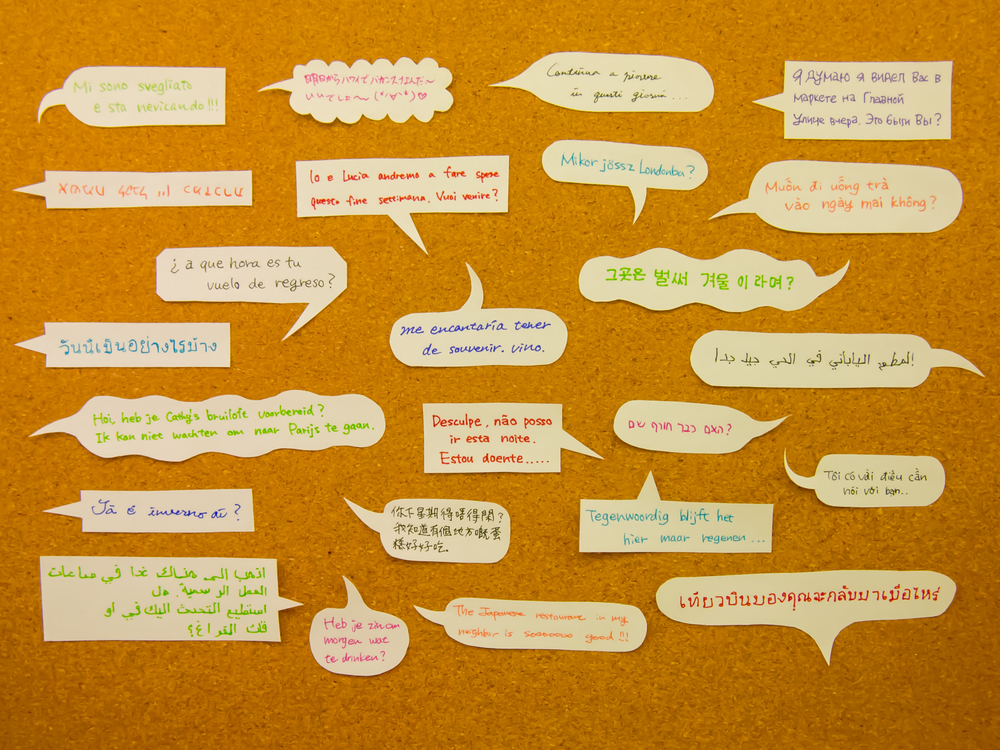 Mi sono svegliato
e sta nevicando!!!
明日からハワイでバカンスなんだ〜
いいでしょ〜 (*'∀'*)♡
Continua a piovere
in questi giorni...
Я думаю я видел Вас в
маркете на Главной
улице вчера. Это были Вы?
Io e Lucia andremo a fare spese
questo fine settimana. Vuoi venire?
Mikor jössz Londonba?
Muốn đi uống trà
vào ngày mai không?
¿a que hora es tu
vuelo de regreso?
그곳은 벌써 겨울 이라며?
me encantaría tener
de souvenir. vino.
วันนี้เป็นอย่างไรบ้าง
المطعم الياباني في الحي جيد جدا!
Hoi, heb je Cathy's bruiloft voorbereid?
Ik kan niet wachten om naar Parijs te gaan.
Desculpe, não posso
ir esta noite.
Estou doente.....
האם כבר חורף שם?
Tôi có vài điều cần
nói với bạn..
Já é inverno aí?
你下星期得唔得閒?
我知道有個地方嘅蛋
糕好好吃。
Tegenwoordig blijft het
hier maar regenen...
اذهب الى هناك غدا في ساعات
العمل الرسمية. هل
استطيع التحدث اليك في او
قات الفراغ؟
Heb je zin om
morgen wat
te drinken?
The Japanese restaurant in my
neighbor is seooooo good!!!
เที่ยวบินของคุณจะกลับมาเมื่อไหร่